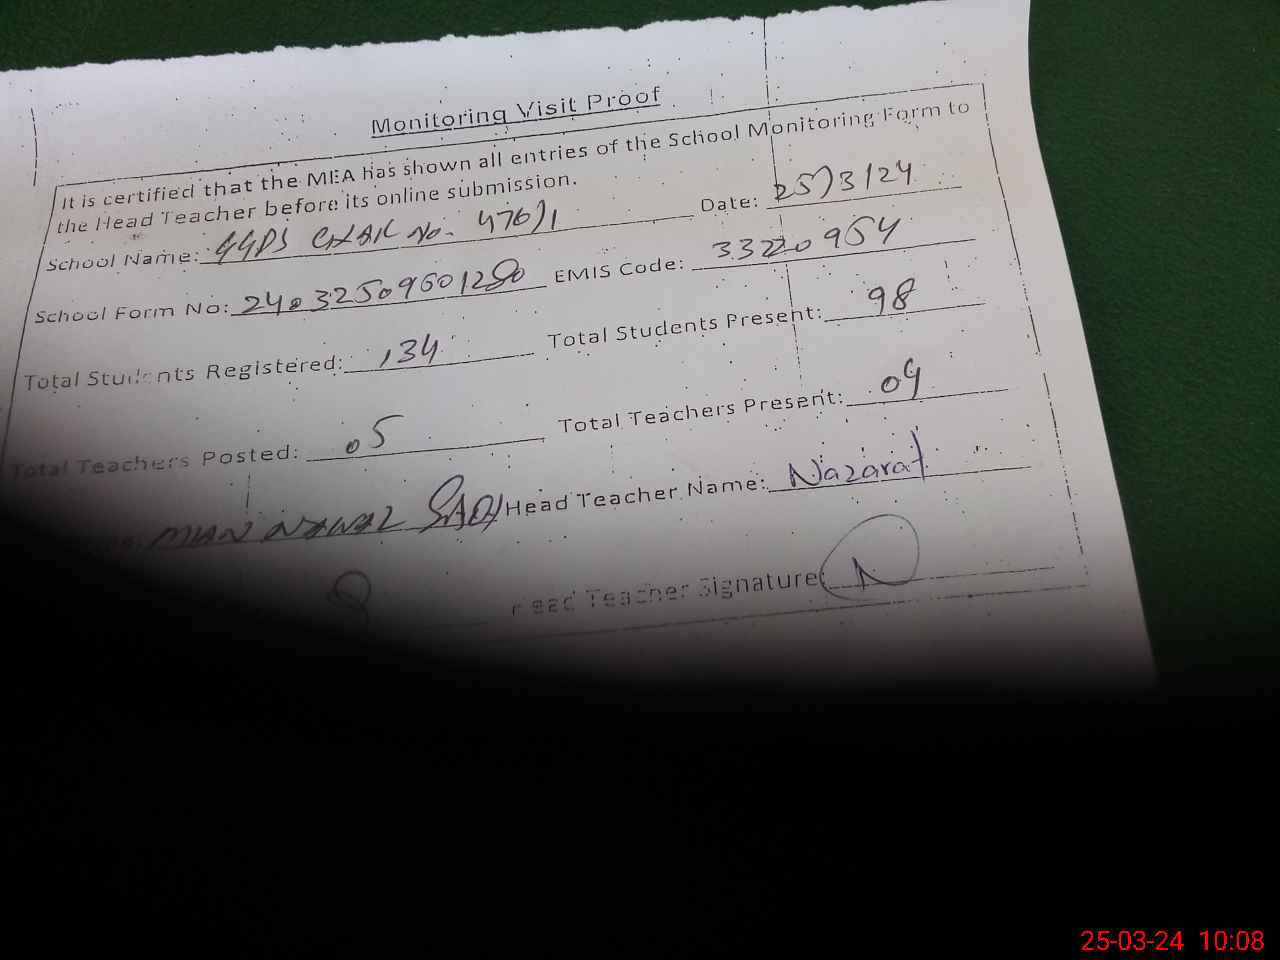 Monitoring Visit Proof
It is certified that the MEA has shown all entries of the School Monitoring Form to
the Head Teacher before its online submission.
School Name: GGPS CHAK No. 476/1 Date: 25/3/24
School Form No: 24032509601280 EMIS Code: 33220954
Total Students Registered: 134 Total Students Present: 98
Total Teachers Posted: 05 Total Teachers Present: 04
MIAN NAWAZ Head Teacher Name: Nazarat
Head Teacher Signature: N
25-03-24 10:08